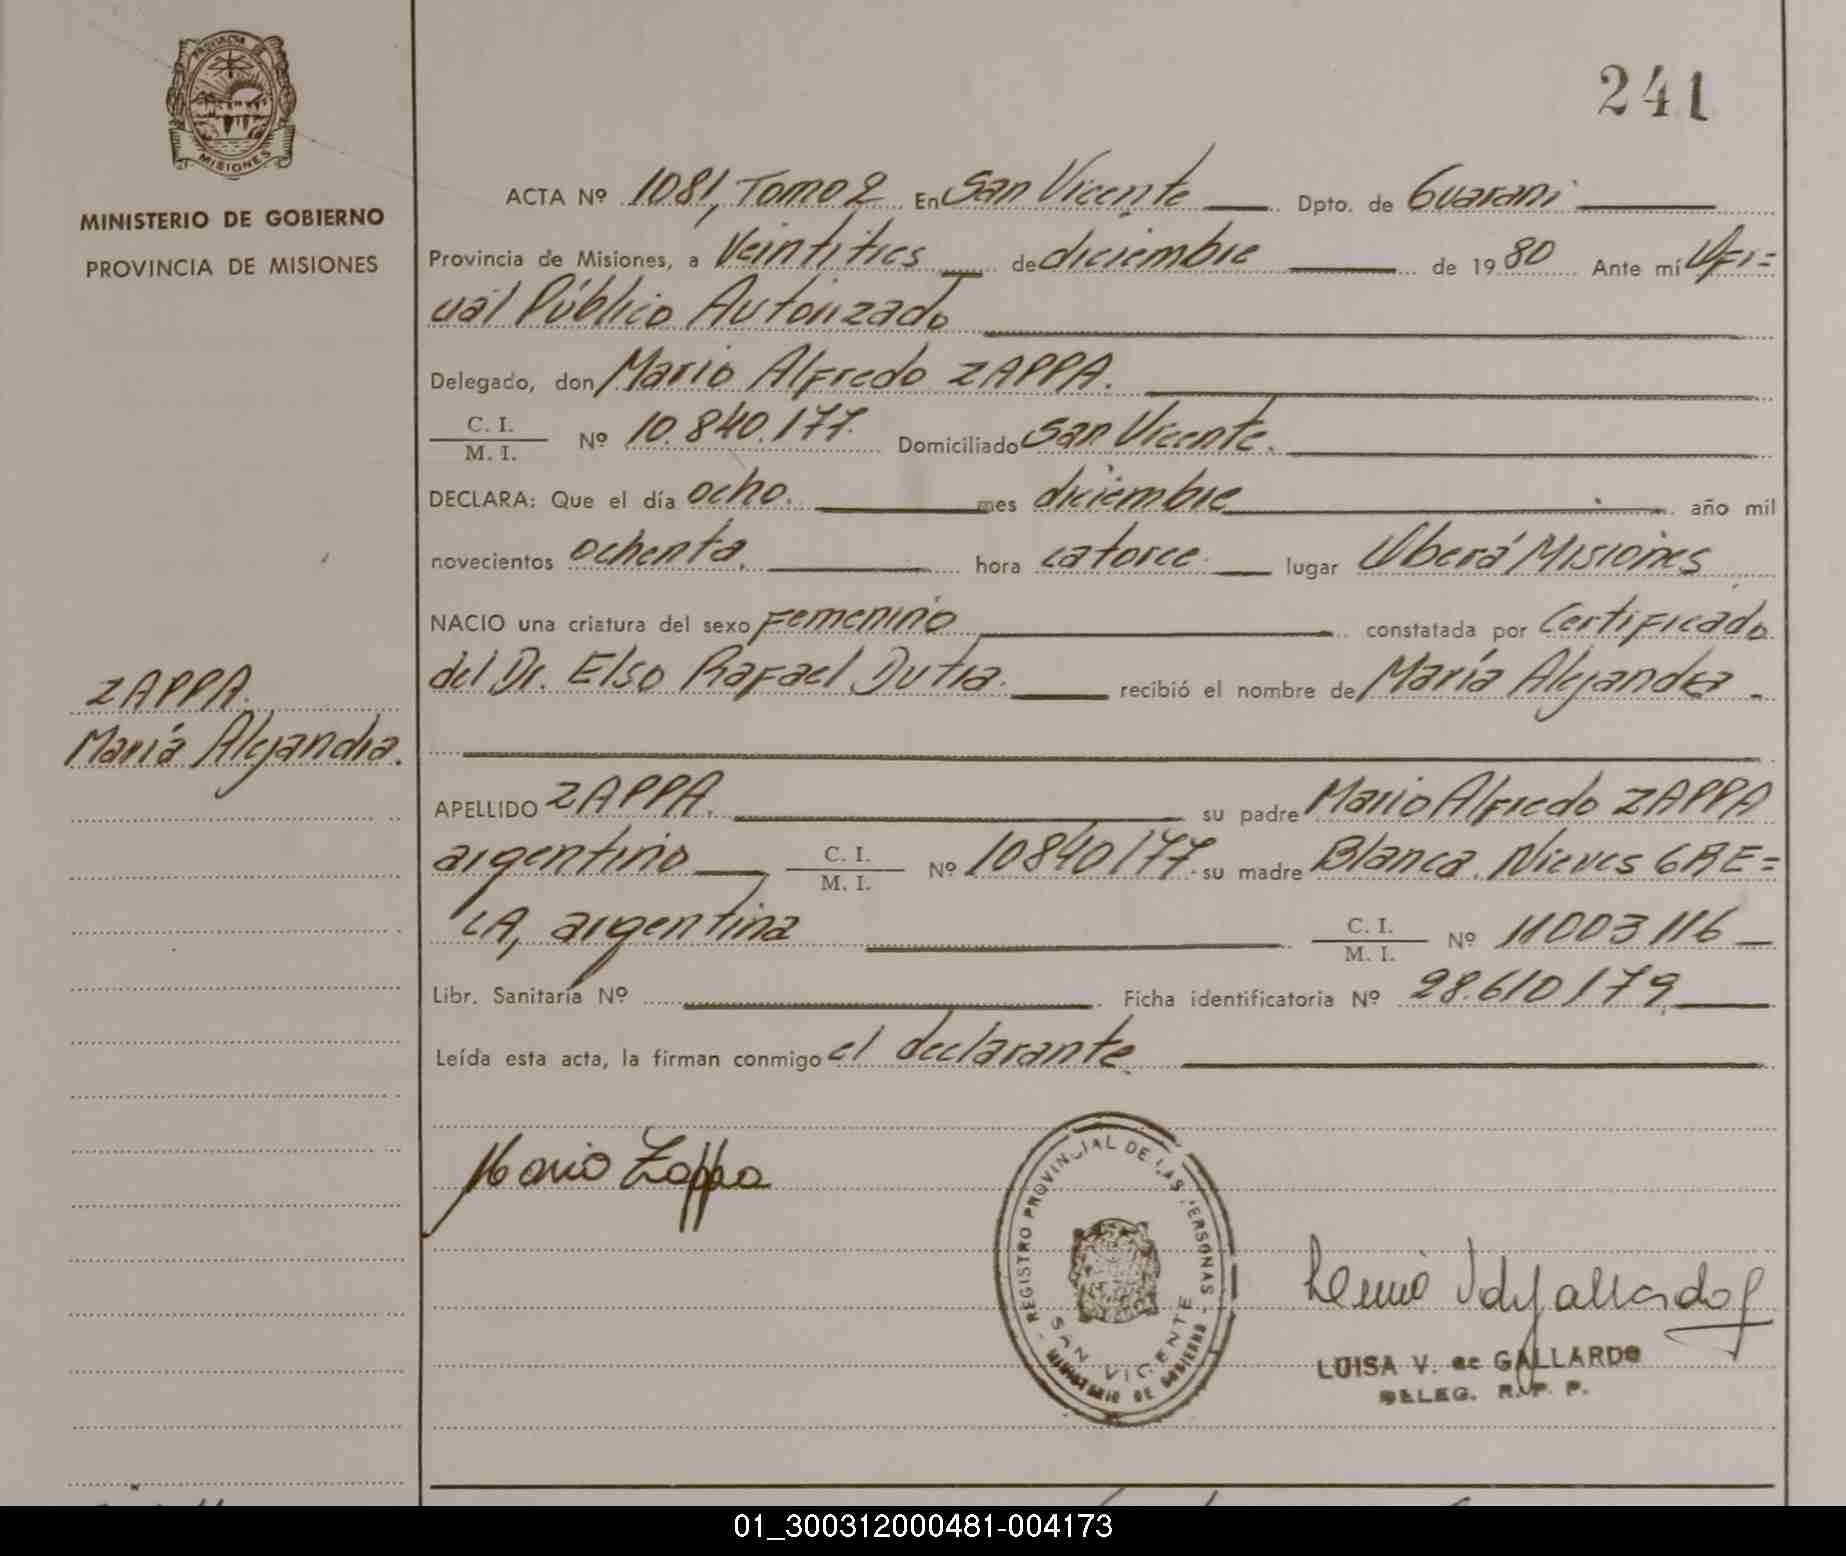 241
PROVINCIA DE
MISIONES
MINISTERIO DE GOBIERNO
PROVINCIA DE MISIONES
ACTA Nº 1081, Tomo 2 En San Vicente Dpto. de Guaraní
Provincia de Misiones, a Veintitres de diciembre de 1980 Ante mí Ofi=
cial Público Autorizado
Delegado, don Mario Alfredo ZAPPA.
C. I.
M. I. Nº 10.840.177. Domiciliado San Vicente.
DECLARA: Que el día ocho. mes diciembre año mil
novecientos ochenta. hora catorce lugar Oberá Misiones
NACIO una criatura del sexo femenino constatada por Certificado
del Dr. Elso Rafael Dutra. recibió el nombre de María Alejandra
ZAPPA.
María Alejandra.
APELLIDO ZAPPA. su padre Mario Alfredo ZAPPA
argentino C. I.
M. I. Nº 10840177 su madre Blanca Nieves GRE=
CA, argentina C. I.
M. I. Nº 11003116
Libr. Sanitaria Nº Ficha identificatoria Nº 28.610179
Leída esta acta, la firman conmigo el declarante
Mario Zappa
REGISTRO PROVINCIAL DE LAS PERSONAS
SAN VICENTE
MINISTERIO DE GOBIERNO
LUISA V. de GALLARDO
DELEG. R. P. P.
01_300312000481-004173